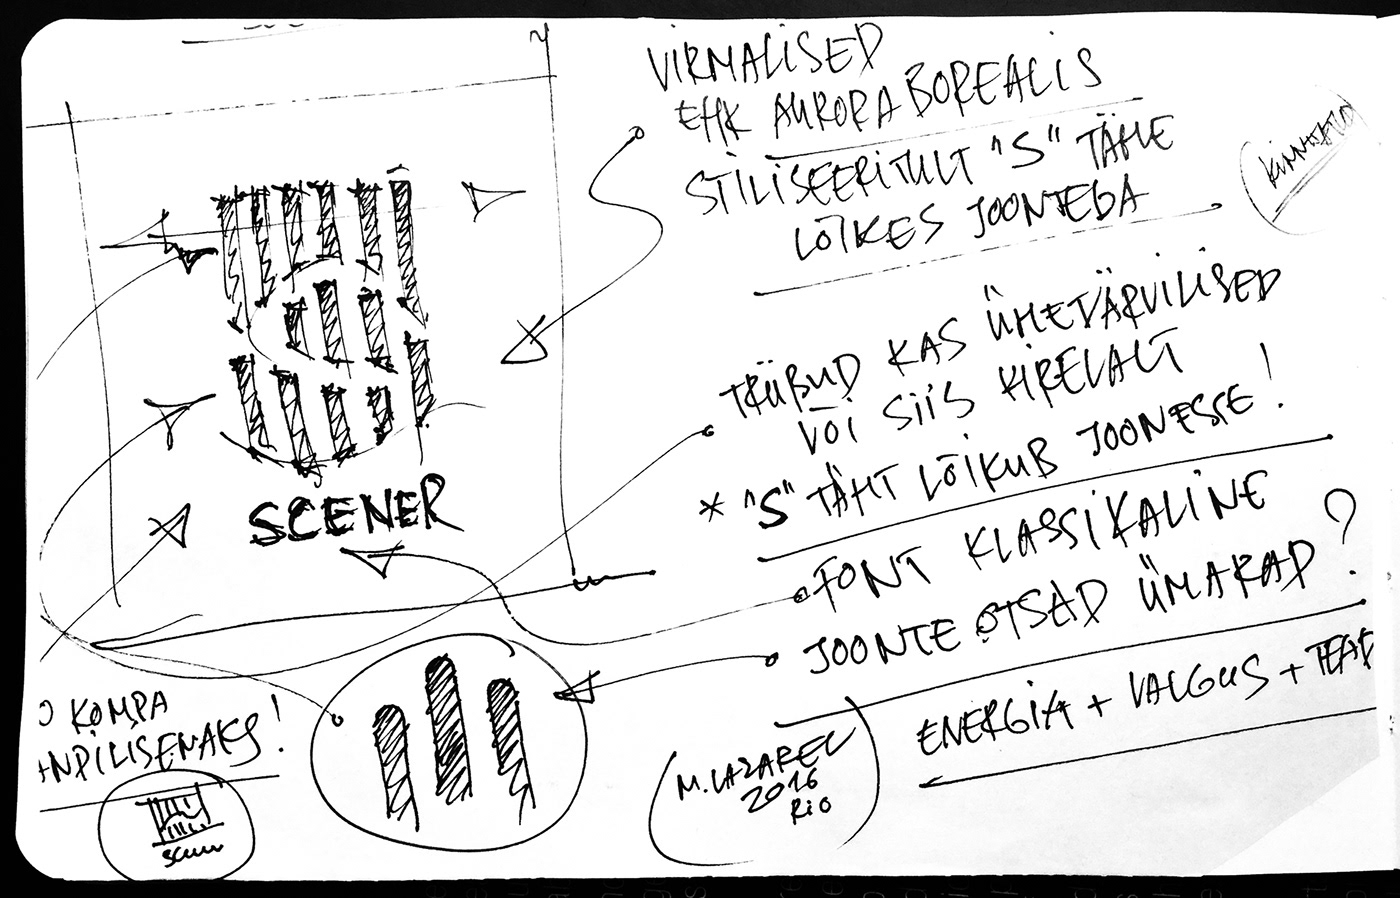 VIRMALISED
EHK AURORA BOREALIS
STILISEERITULT "S" TÄHE
LÕIKES JOONTEGA
TRIIBUD KAS ÜHEVÄRVILISED
VÕI SIIS KIREVALT
* "S" TÄHT LÕIKUB JOONESSE!
FONT KLASSIKALINE
JOONTE OTSAD ÜMARAD?
ENERGIA + VALGUS +
SCENER
KOMPA
M. LAZAREV
2016
RIO